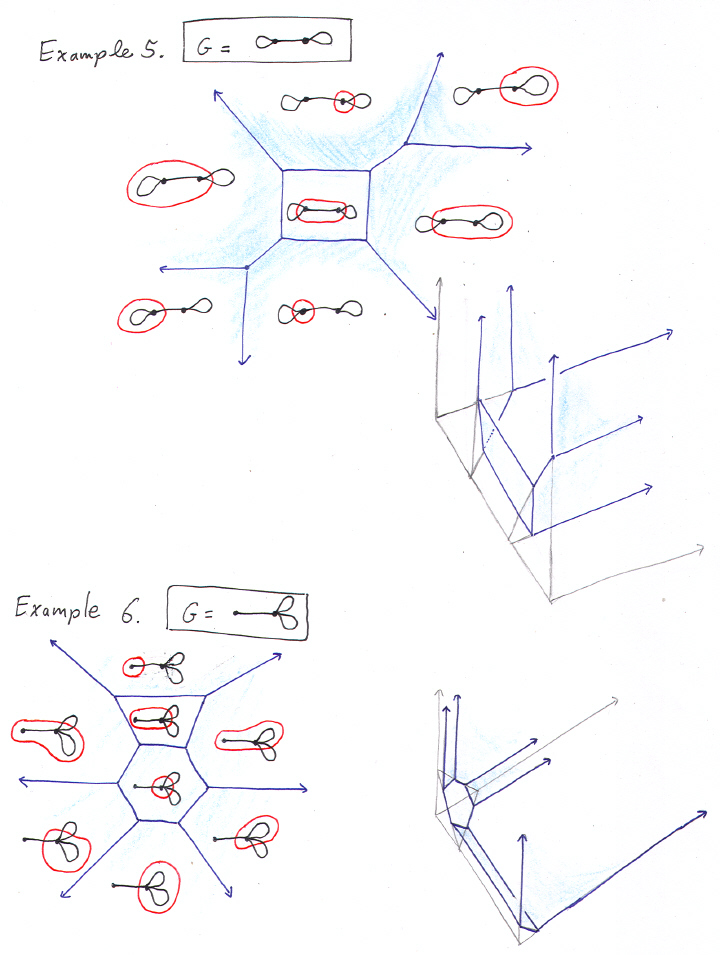 Example 5. G =
Example 6. G =